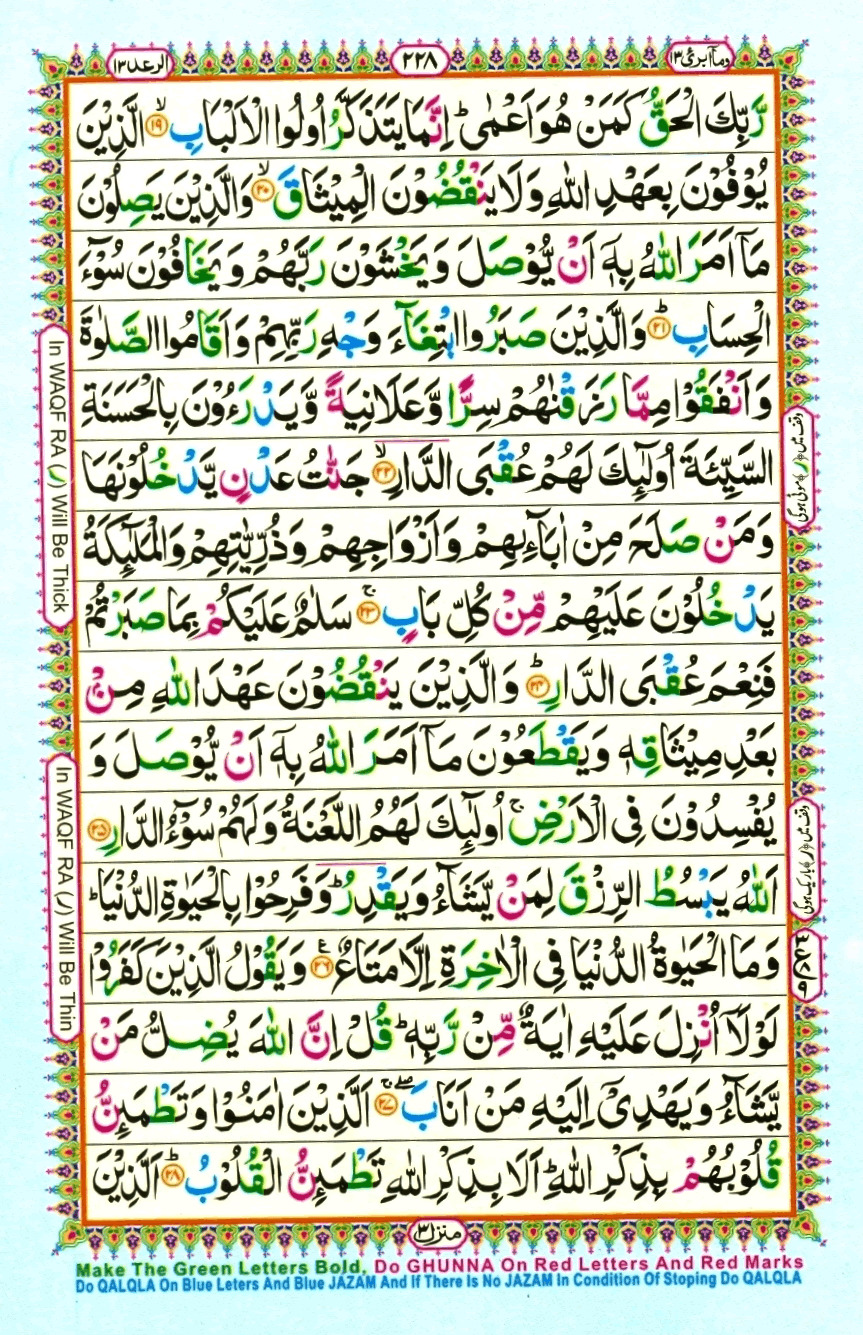 الرعد۱۳
۲۲۸
وماۤابرئ۱۳
رَّبِّكَ الْحَقُّ كَمَنْ هُوَ اَعْمٰىؕ اِنَّمَا يَتَذَكَّرُ اُولُوا الْاَلْبَابِۙ‏﴿۱۹﴾ الَّذِيْنَ
يُوْفُوْنَ بِعَهْدِ اللّٰهِ وَلَا يَنْقُضُوْنَ الْمِيْثَاقَۙ‏﴿۲۰﴾ وَالَّذِيْنَ يَصِلُوْنَ
مَاۤ اَمَرَ اللّٰهُ بِهٖۤ اَنْ يُّوْصَلَ وَيَخْشَوْنَ رَبَّهُمْ وَيَخَافُوْنَ سُوْٓءَ
الْحِسَابِؕ‏﴿۲۱﴾ وَالَّذِيْنَ صَبَرُوا ابْتِغَآءَ وَجْهِ رَبِّهِمْ وَاَقَامُوا الصَّلٰوةَ
وَاَنْفَقُوْا مِمَّا رَزَقْنٰهُمْ سِرًّا وَّعَلَانِيَةً وَّيَدْرَءُوْنَ بِالْحَسَنَةِ
السَّيِّئَةَ اُولٰٓئِكَ لَهُمْ عُقْبَى الدَّارِۙ‏﴿۲۲﴾ جَنّٰتُ عَدْنٍ يَّدْخُلُوْنَهَا
وَمَنْ صَلَحَ مِنْ اٰبَآئِهِمْ وَاَزْوَاجِهِمْ وَذُرِّيّٰتِهِمْ وَالْمَلٰٓئِكَةُ
يَدْخُلُوْنَ عَلَيْهِمْ مِّنْ كُلِّ بَابٍۚ‏﴿۲۳﴾ سَلٰمٌ عَلَيْكُمْ بِمَا صَبَرْتُمْ
فَنِعْمَ عُقْبَى الدَّارِؕ‏﴿۲۴﴾ وَالَّذِيْنَ يَنْقُضُوْنَ عَهْدَ اللّٰهِ مِنْۢ
بَعْدِ مِيْثَاقِهٖ وَيَقْطَعُوْنَ مَاۤ اَمَرَ اللّٰهُ بِهٖۤ اَنْ يُّوْصَلَ وَ
يُفْسِدُوْنَ فِى الْاَرْضِۙ اُولٰٓئِكَ لَهُمُ اللَّعْنَةُ وَلَهُمْ سُوْٓءُ الدَّارِ‏﴿۲۵﴾
اَللّٰهُ يَبْسُطُ الرِّزْقَ لِمَنْ يَّشَآءُ وَيَقْدِرُؕ وَفَرِحُوْا بِالْحَيٰوةِ الدُّنْيَاؕ
وَمَا الْحَيٰوةُ الدُّنْيَا فِى الْاٰخِرَةِ اِلَّا مَتَاعٌ‏﴿۲۶﴾ وَيَقُوْلُ الَّذِيْنَ كَفَرُوْا
لَوْلَاۤ اُنْزِلَ عَلَيْهِ اٰيَةٌ مِّنْ رَّبِّهٖؕ قُلْ اِنَّ اللّٰهَ يُضِلُّ مَنْ
يَّشَآءُ وَيَهْدِىْۤ اِلَيْهِ مَنْ اَنَابَ‏ۖۚ﴿۲۷﴾ اَلَّذِيْنَ اٰمَنُوْا وَتَطْمَئِنُّ
قُلُوْبُهُمْ بِذِكْرِ اللّٰهِؕ اَلَا بِذِكْرِ اللّٰهِ تَطْمَئِنُّ الْقُلُوْبُؕ‏﴿۲۸﴾ اَلَّذِيْنَ
In WAQF RA (ر) Will Be Thick
In WAQF RA (ر) Will Be Thin
وقف میں ﴿ر﴾ موٹی ہوگی
وقف میں ﴿ر﴾ باریک ہوگی
منزل۳
Make The Green Letters Bold, Do GHUNNA On Red Letters And Red Marks
Do QALQLA On Blue Leters And Blue JAZAM And If There Is No JAZAM In Condition Of Stoping Do QALQLA